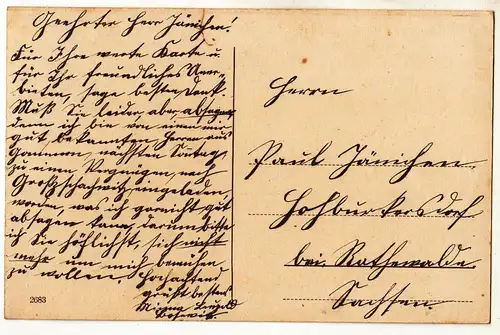 Geehrter Herr Jänichen!
Für Ihre werte Karte u.
für Ihr freundliches Aner-
bieten, sage besten Dank.
Muß Sie leider aber absagen,
denn ich bin von einem mir
gut bekannten Herrn aus
nächsten Sontag
zu einen Vergnügen nach
Großzschachwitz eingeladen
worden, was ich garnicht gut
absagen kann, darum bitte
ich Sie höflichst, sich nicht
mehr um mich bemühen
zu wollen. Hochachtend
grüßt bestens
2683
Herrn
Paul Jänichen
Hohburkersdorf
bei Rathewalde
Sachsen